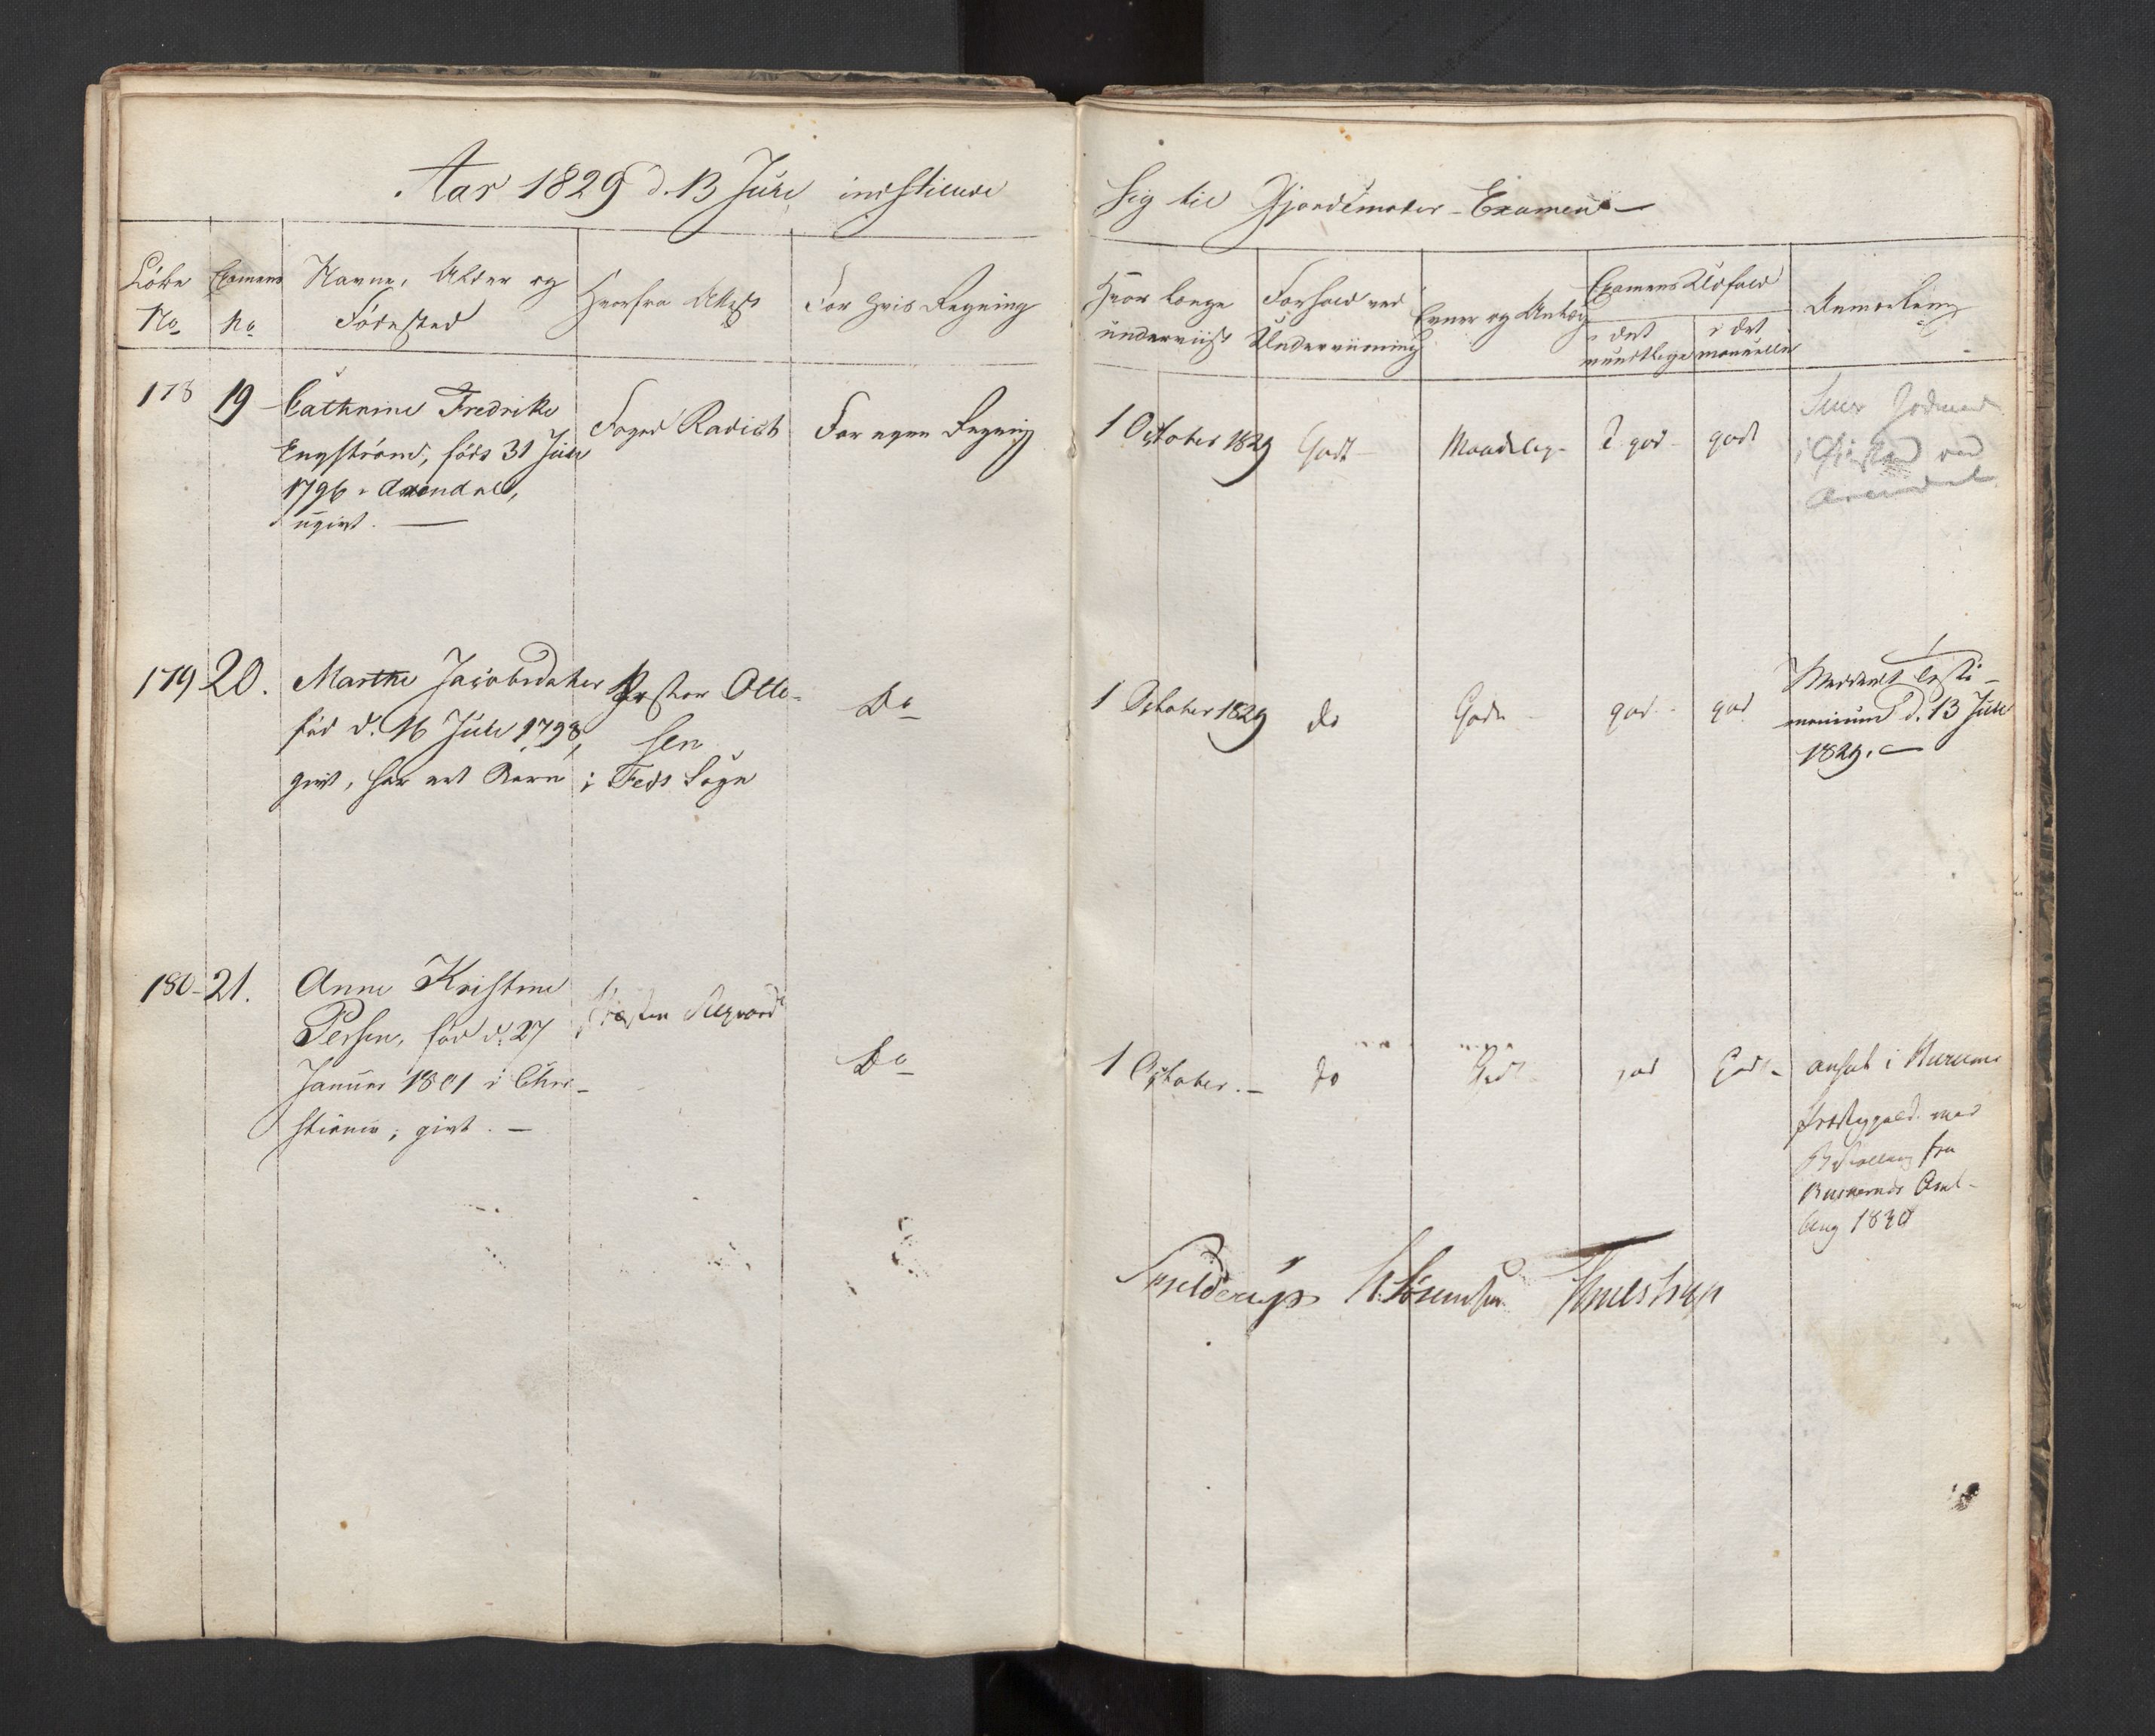 Aar 1829 d. 13 Juli indstillede
sig til Gjordemoder-Examen
Löbe No
Examens No
Navne, Alder og
Födested
Hvorfra Attest
For hvis Regning
Hvor længe
underviist
Forhold ved
Underviisning
Evner og Anlæg
Examens Udfald
i det
mundtlige
i det
manuelle
Anmærkning
178 19 Cathrine Fredrikke
Engström, föds 31 Juli
1796 i Arendal,
ugivt. —
Foged Radich
For egen Regning
1 October 1829
Godt
Maadelig
god
godt
i ved
Arendal
179 20. Marthe Jacobsdatter
föd d. 16 Juli 1798,
givt, har et Barn
Præsten Otte-
sen
i Feds Sogn
Do
1 October 1829
do
Gode
god
god
Meddeelt Testi-
monium d. 13 Juli
1829. —
180 - 21. Anne Kristine
Persen, föd d. 27
Januar 1801 i Chri-
stiania, givt. —
Præsten
Do
1 October. —
do
Godt
god
Godt
ansat i
Præstegjeld med
Bestalling fra
Buskeruds Amt
Aug 1830